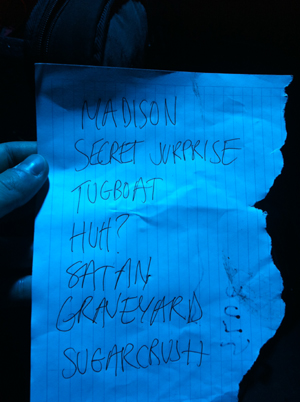 MADISON
SECRET SURPRISE
TUGBOAT
HUH?
SATAN
GRAVEYARD
SUGARCRUSH